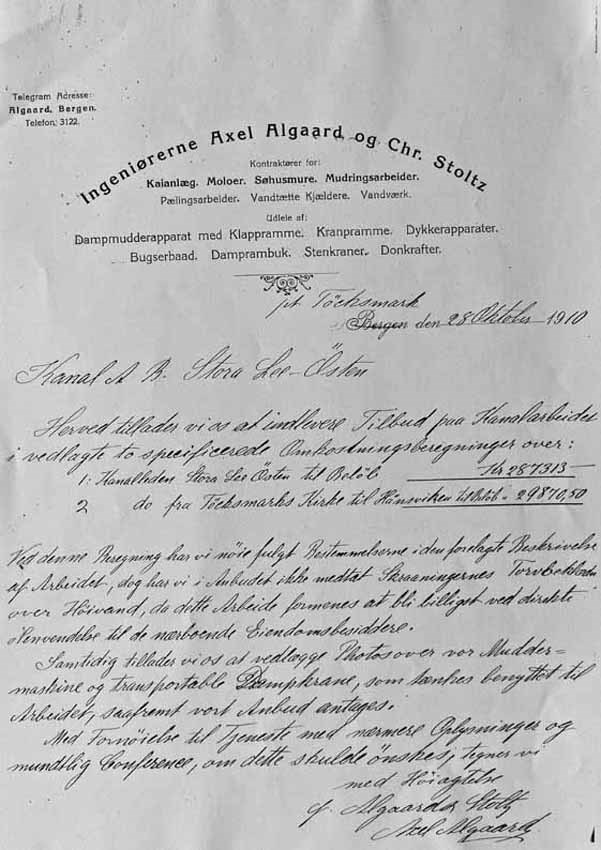 Telegram Adresse:
Algaard, Bergen.
Telefon, 3122.
Ingeniørerne Axel Algaard og Chr. Stoltz
Kontraktører for:
Kaianlæg. Moloer. Søhusmure. Mudringsarbeider.
Pælingsarbeider. Vandtætte Kjældere. Vandværk.
Udleie af:
Dampmudderapparat med Klappramme. Kranpramme. Dykkerapparater.
Bugserbaad. Damprambuk. Stenkraner. Donkrafter.
pt. Töcksmark
Bergen den 28 Oktober 1910
Kanal A B. Stora Lee-Östen
Herved tillader vi os at indlevere Tilbud paa Kanalarbeidet
i vedlagte to specificerede Omkostningsberegninger over:
1: Kanalleden Stora Lee Östen til Beløb Kr 287313-
2 do fra Töcksmarks Kirke til Hånsviken til Beløb " 29870,50
Ved denne Beregning har vi nöie fulgt Bestemmelserne i den forelagte Beskrivelse
af Arbeidet, dog har vi i Anbudet ikke medtat Skraaningernes
over Höivand, da dette Arbeide formenes at bli billigst ved direkte
Henvendelse til de nærboende Eiendomsbesiddere.
Samtidig tillader vi os at vedlægge Photos over vor Mudder=
maskine og transportable Dampkrane, som tænkes benyttet til
Arbeidet, saafremt vort Anbud antages.
Med Fornöielse til Tjeneste med nærmere Oplysninger og
mundtlig Conference, om dette skulde önskes, tegner vi
med Höiagtelse
p. Algaard & Stoltz
Axel Algaard